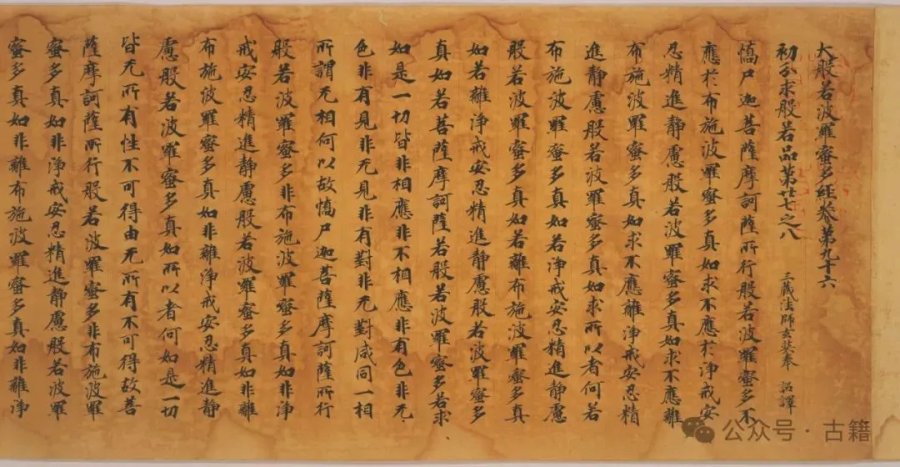 大般若波羅蜜多經卷第九十六
初分求般若品第廿七之八
三藏法師玄奘奉 詔譯
憍尸迦菩薩摩訶薩所行般若波羅蜜多不
應於布施波羅蜜多真如求不應於淨戒安
忍精進靜慮般若波羅蜜多真如求不應離
布施波羅蜜多真如求不應離淨戒安忍精
進靜慮般若波羅蜜多真如求所以者何若
布施波羅蜜多真如若淨戒安忍精進靜慮
般若波羅蜜多真如若離布施波羅蜜多真
如若離淨戒安忍精進靜慮般若波羅蜜多
真如若菩薩摩訶薩若般若波羅蜜多若求
如是一切皆非相應非不相應非有色非无
色非有見非无見非有對非无對咸同一相
所謂无相何以故憍尸迦菩薩摩訶薩所行
般若波羅蜜多非布施波羅蜜多真如非淨
戒安忍精進靜慮般若波羅蜜多真如非離
布施波羅蜜多真如非離淨戒安忍精進靜
慮般若波羅蜜多真如所以者何如是一切
皆无所有性不可得由无所有不可得故菩
薩摩訶薩所行般若波羅蜜多非布施波羅
蜜多真如非淨戒安忍精進靜慮般若波羅
蜜多真如非離布施波羅蜜多真如非離淨
公众号·古籍